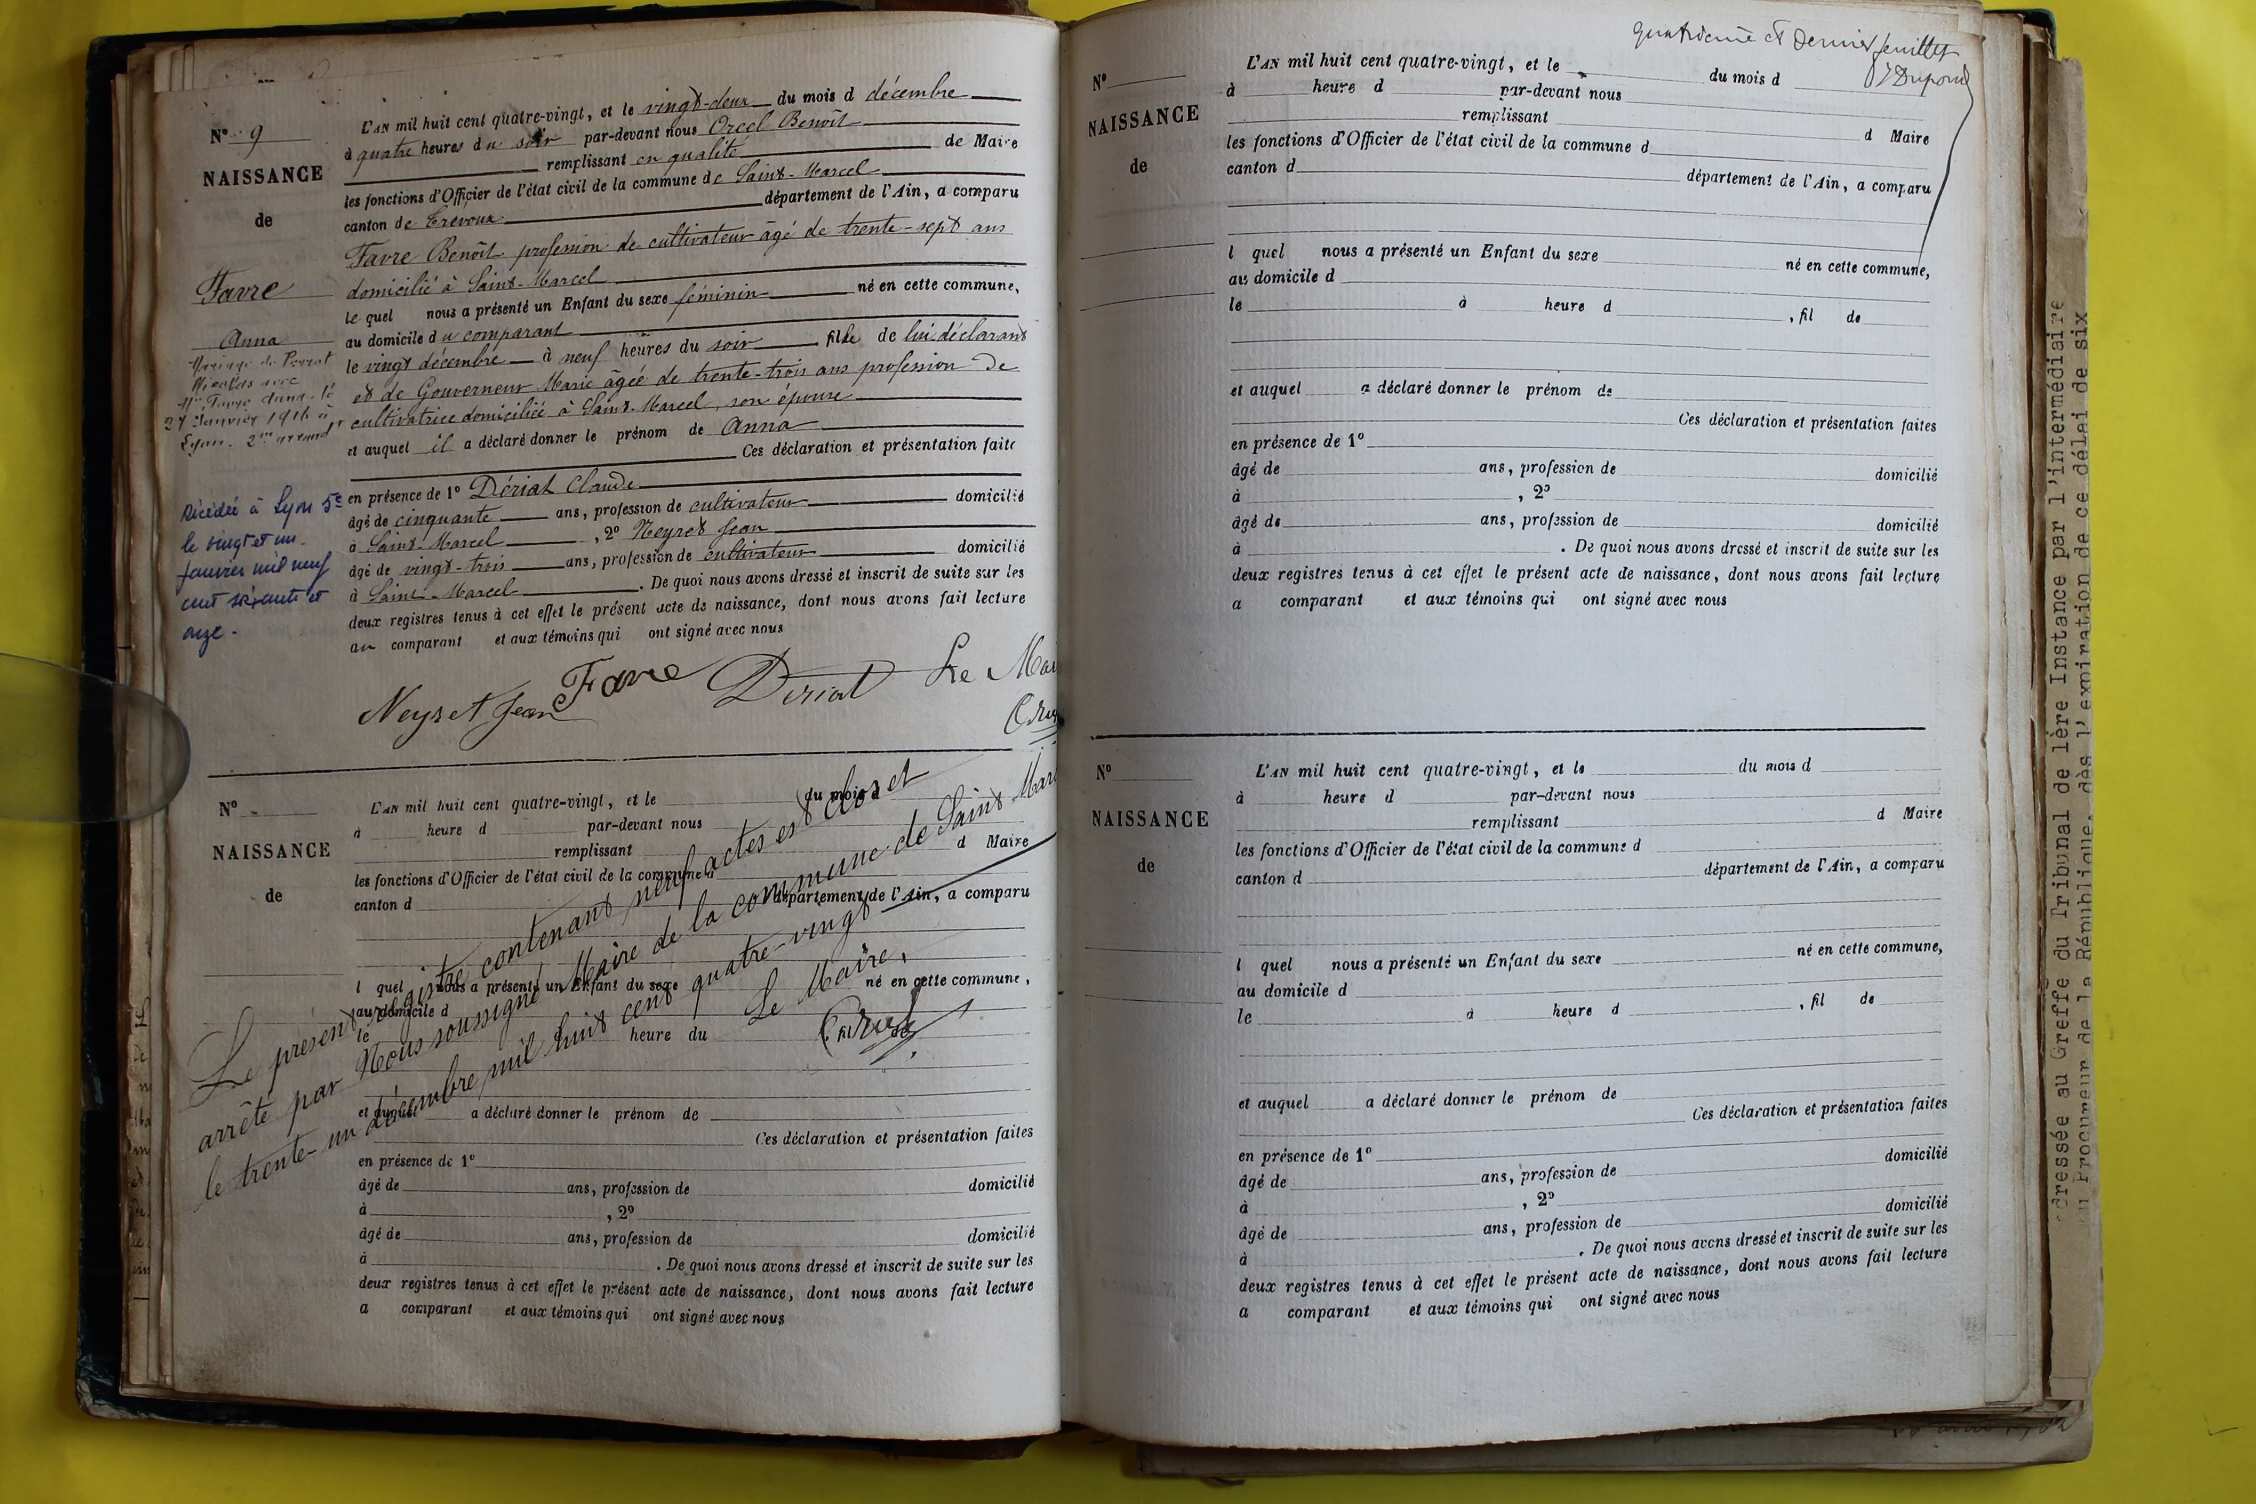 N° 9
NAISSANCE
de
Favre
Anna
Mariage de Perrat
Nicolas avec
Mlle Favre Anna le
27 Janvier 1914 à
Lyon. 2me arrondt
Décédée à Lyon 5e
le vingt et un
janvier mil neuf
cent soixante et
onze.
L'AN mil huit cent quatre-vingt, et le vingt-deux du mois d décembre
à quatre heures du soir par-devant nous Orcel Benoît
remplissant en qualité de Maire
les fonctions d'Officier de l'état civil de la commune de Saint-Marcel
canton de Trévoux département de l'Ain, a comparu
Favre Benoît profession de cultivateur âgé de trente-sept ans
domicilié à Saint-Marcel
le quel nous a présenté un Enfant du sexe féminin né en cette commune,
au domicile du comparant
le vingt décembre à neuf heures du soir fille de lui déclarant
et de Gouverneur Marie âgée de trente-trois ans profession de
cultivatrice domiciliée à Saint-Marcel, son épouse
et auquel il a déclaré donner le prénom de Anna
Ces déclaration et présentation faite
en présence de 1° Dériat Claude
âgé de cinquante ans, profession de cultivateur domicilié
à Saint-Marcel, 2° Neyret Jean
âgé de vingt-trois ans, profession de cultivateur domicilié
à Saint-Marcel. De quoi nous avons dressé et inscrit de suite sur les
deux registres tenus à cet effet le présent acte de naissance, dont nous avons fait lecture
au comparant et aux témoins qui ont signé avec nous
Neyret Jean Favre Dériat Le Mai
N°
NAISSANCE
de
L'AN mil huit cent quatre-vingt, et le du mois d
à heure d par-devant nous
remplissant d Maire
les fonctions d'Officier de l'état civil de la commune d
canton d département de l'Ain, a comparu
l quel nous a présenté un Enfant du sexe né en cette commune,
au domicile d
le heure du
et auquel a déclaré donner le prénom de
Ces déclaration et présentation faites
en présence de 1°
âgé de ans, profession de domicilié
à , 2°
âgé de ans, profession de domicilié
à . De quoi nous avons dressé et inscrit de suite sur les
deux registres tenus à cet effet le présent acte de naissance, dont nous avons fait lecture
a comparant et aux témoins qui ont signé avec nous
Le présent registre contenant neuf actes est clos et
arrêté par Nous soussigné Maire de la commune de Saint Marc
le trente-un décembre mil huit cent quatre-vingt
Le Maire,
quatrième et dernier feuillet
Dupond
N°
NAISSANCE
de
L'AN mil huit cent quatre-vingt, et le du mois d
à heure d par-devant nous
remplissant d Maire
les fonctions d'Officier de l'état civil de la commune d
canton d département de l'Ain, a comparu
l quel nous a présenté un Enfant du sexe né en cette commune,
au domicile d
le à heure d , fil de
et auquel a déclaré donner le prénom de
Ces déclaration et présentation faites
en présence de 1°
âgé de ans, profession de domicilié
à , 2°
âgé de ans, profession de domicilié
à . De quoi nous avons dressé et inscrit de suite sur les
deux registres tenus à cet effet le présent acte de naissance, dont nous avons fait lecture
a comparant et aux témoins qui ont signé avec nous
N°
NAISSANCE
de
L'AN mil huit cent quatre-vingt, et le du mois d
à heure d par-devant nous
remplissant d Maire
les fonctions d'Officier de l'état civil de la commune d
canton d département de l'Ain, a comparu
l quel nous a présenté un Enfant du sexe né en cette commune,
au domicile d
le à heure d , fil de
et auquel a déclaré donner le prénom de
Ces déclaration et présentation faites
en présence de 1°
âgé de ans, profession de domicilié
à , 2°
âgé de ans, profession de domicilié
à . De quoi nous avons dressé et inscrit de suite sur les
deux registres tenus à cet effet le présent acte de naissance, dont nous avons fait lecture
a comparant et aux témoins qui ont signé avec nous
dressée au Greffe du Tribunal de 1ère Instance par l'intermédiaire
u Procureur de la République, dès l'expiration de ce délai de six